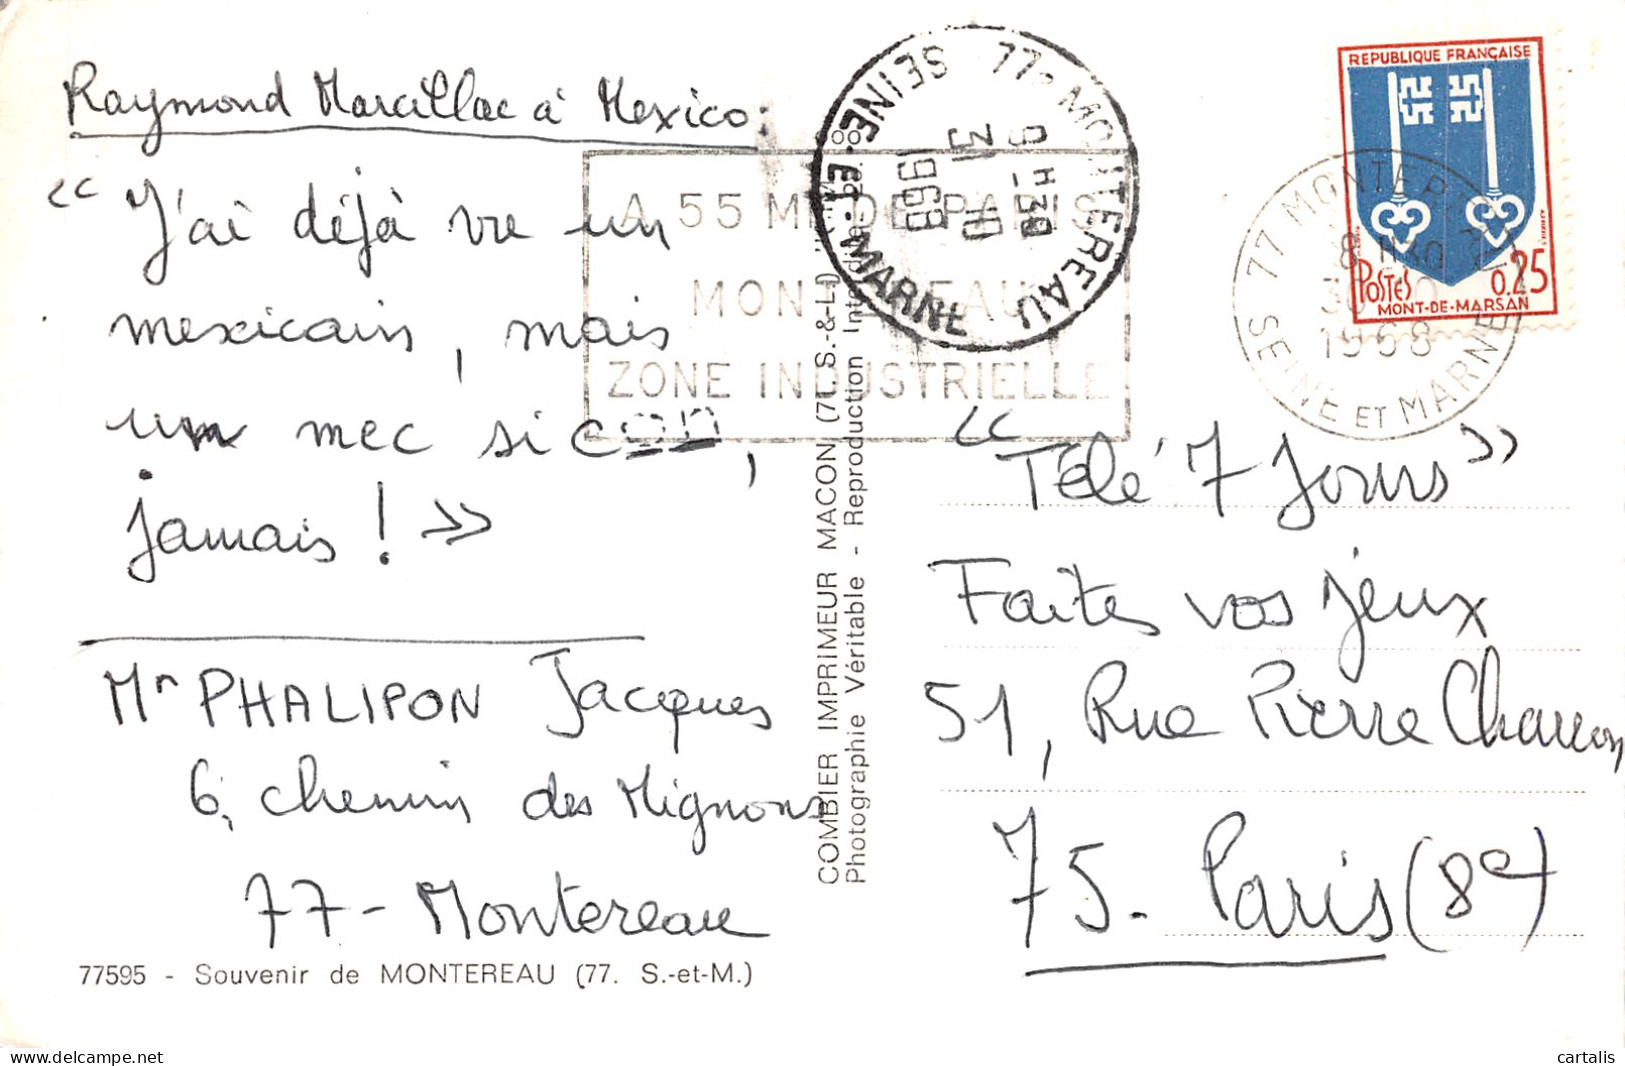 Raymond Marcillac à Mexico :
« J'ai déjà vu un
mexicain, mais
un mec si con,
jamais ! »
Mr PHALIPON Jacques
6, chemin des Mignons
77 - Montereau
77595 - Souvenir de MONTEREAU (77. S.-et-M.)
COMBIER IMPRIMEUR MACON (71. S.-&-L.)
Photographie Véritable - Reproduction
A 55 M DE PARIS
MONTEREAU
ZONE INDUSTRIELLE
77 - MONTEREAU
9 H 30
31 - 10
1968
SEINE - ET - MARNE
REPUBLIQUE FRANÇAISE
POSTES
0.25
MONT-DE-MARSAN
77 MONTEREAU
1968
SEINE ET MARNE
« Télé 7 Jours »
Faites vos jeux
51, Rue Pierre Charron
75 - Paris (8e)
www.delcampe.net
cartalis